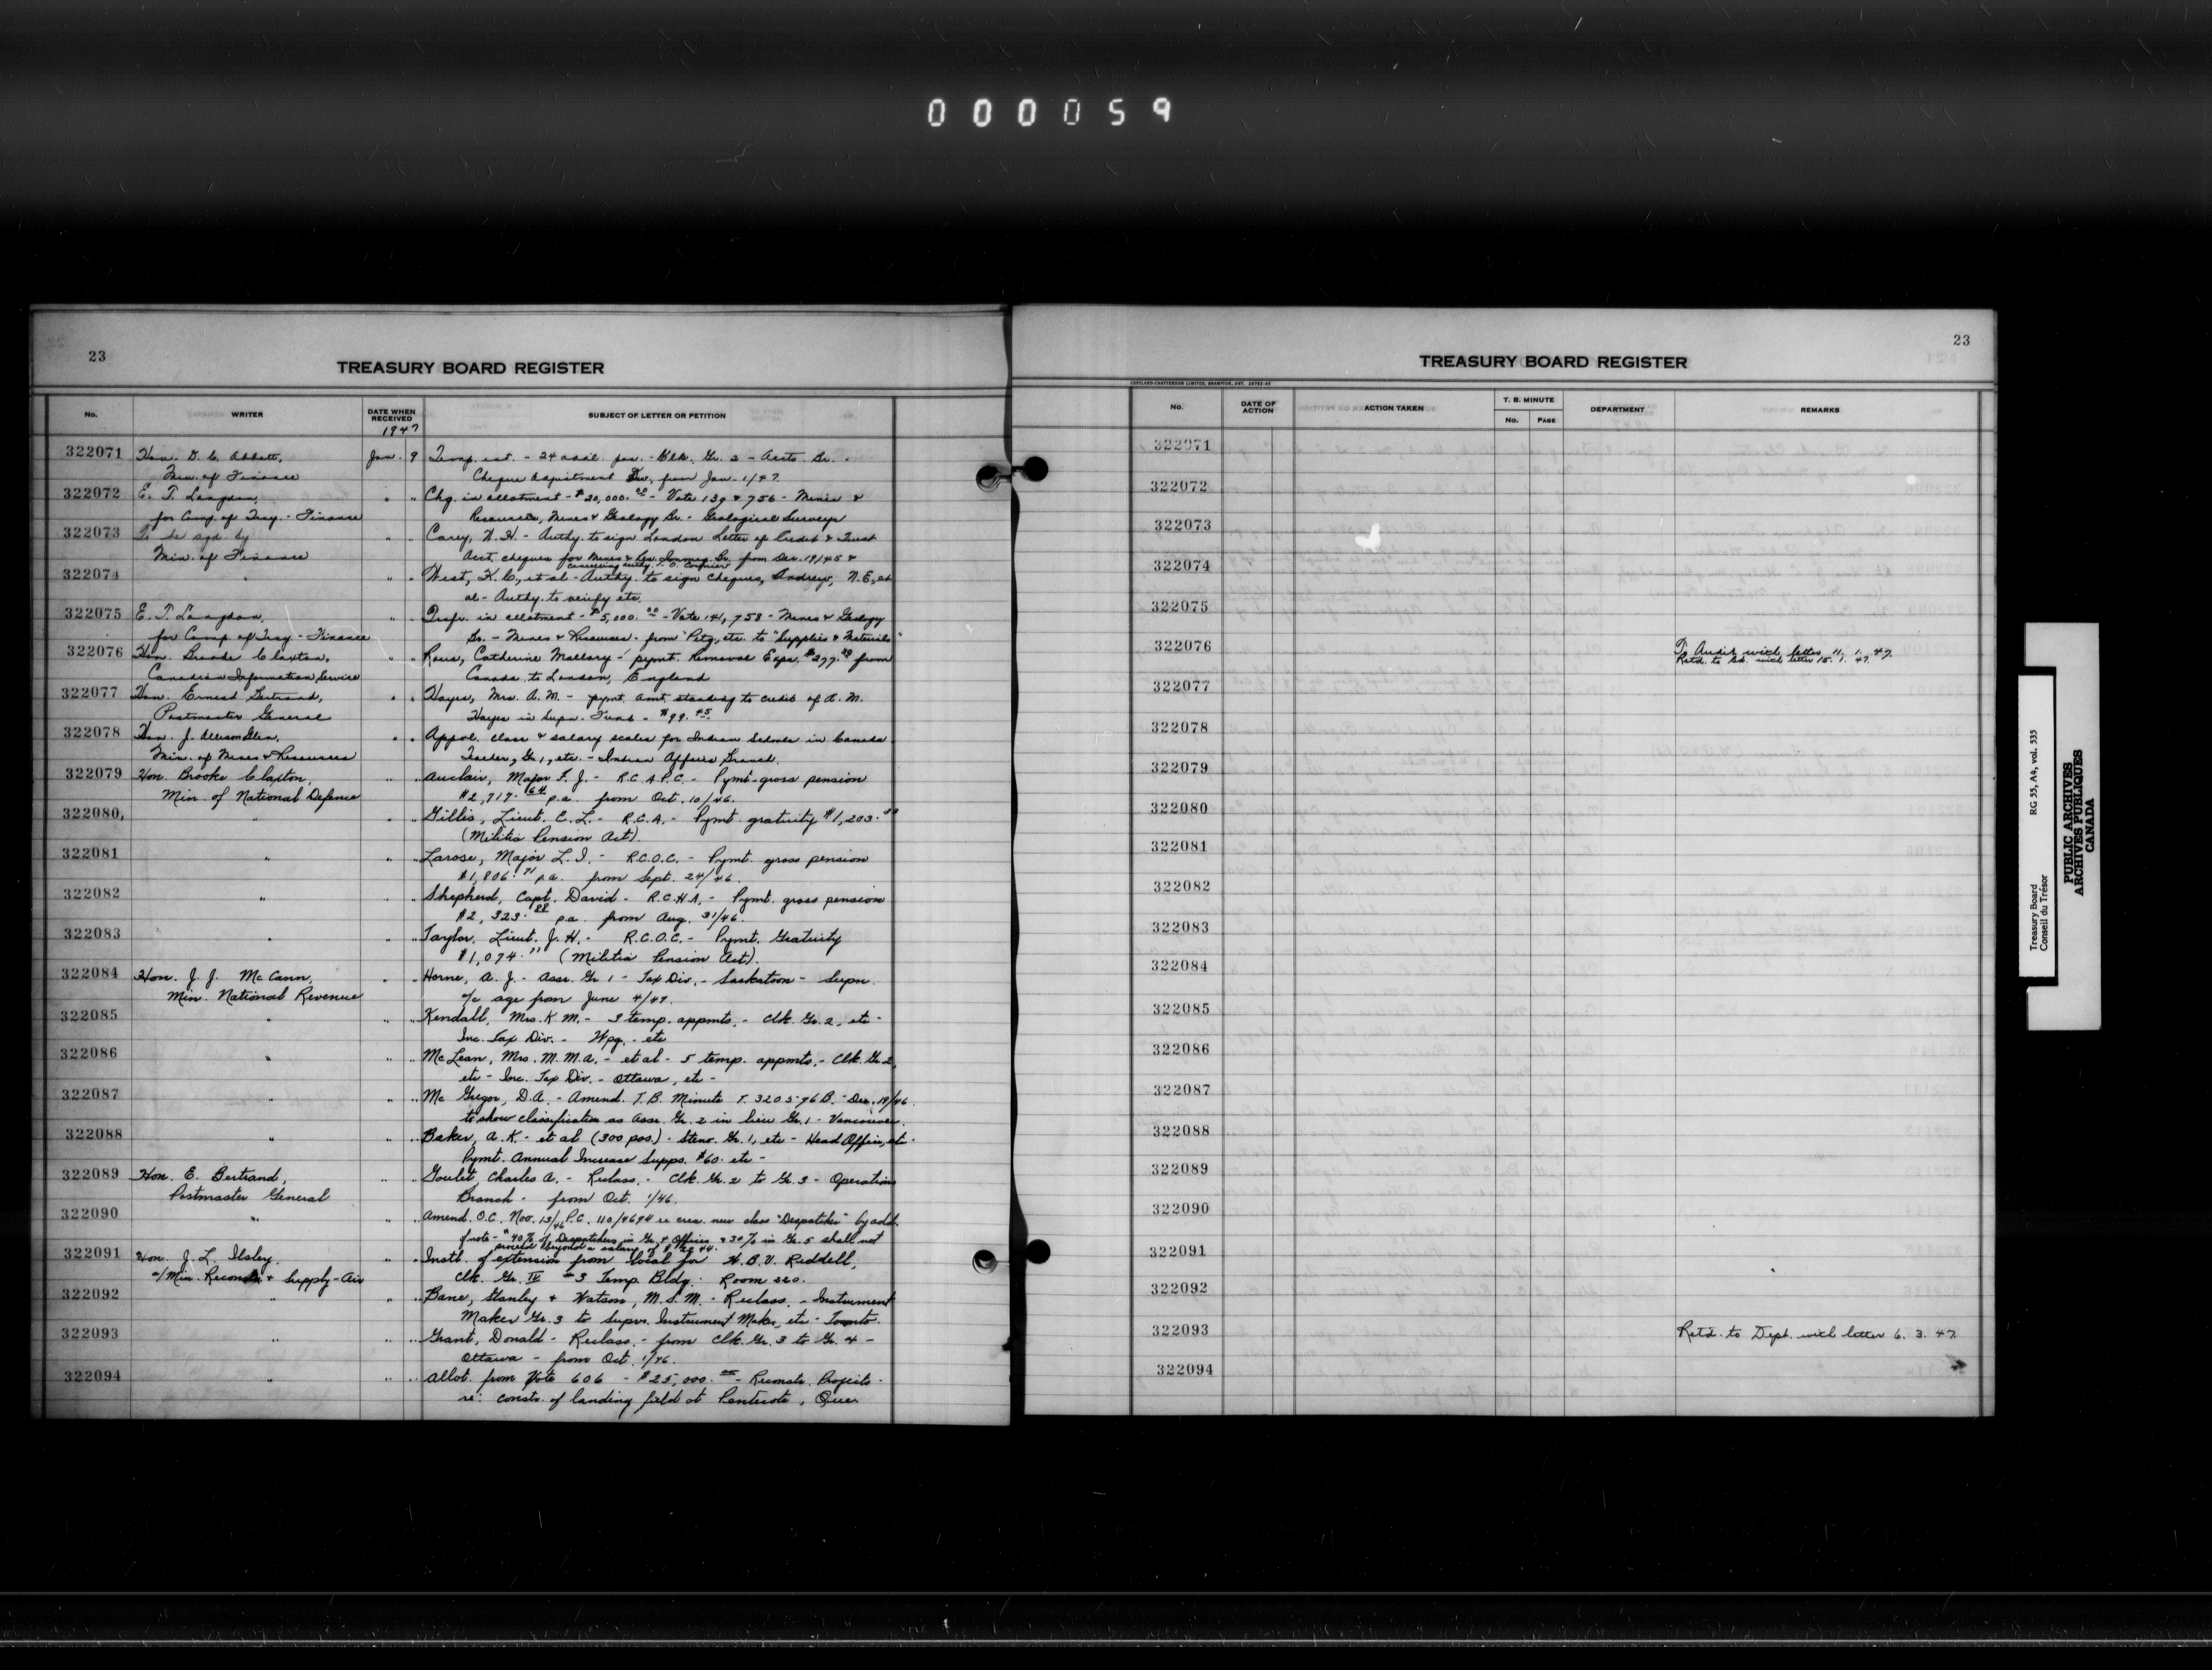 000059
23
TREASURY BOARD REGISTER
No. WRITER DATE WHEN RECEIVED SUBJECT OF LETTER OR PETITION
1947
322071 Hon. D. C. Abbott, Jan. 9 Temp. est. - 24 addl. pos. - Clk. Gr. 2 - Accts. Br. -
Min. of Finance Cheque Adjustment Div. from Jan. 1/47.
322072 E. T. Langdon, " " Chg. in allotment - $20,000.00 - Vote 139 & 756 - Mines &
for Comp. of Treas. - Finance Resources, Mines & Geology Br. - Geological Surveys
322073 To be sgd. by " " Carey, - Authy. to sign London Letter of Credit & Trust
Min. of Finance Acct. cheques for Mines & Res. Immig. Br. from Dec. 19/45 &
cancelling authy. T. O.
322074 " " " West, K. C., et al - Authy. to sign cheques, Andrew, N. E., et
al - Authy. to verify etc.
322075 E. T. Langdon, " " Trsfr. in allotment - $5,000.00 - Vote 141, 758 - Mines & Geology
for Comp. of Treas. - Finance Br. - Mines & Resources - from "Ptg., etc. to "Supplies & Materials"
322076 Hon. Brooke Claxton, " " Ross, Catherine Mallory - pymt. Removal Exps. from
Canadian Information Service Canada to London, England
322077 Hon. Ernest Bertrand, " " Hayes, Mrs. A. M. - pymt. amt. standing to credit of A. M.
Postmaster General Hayes in Supn. Fund - $99.45
322078 Hon. J. Allison Glen, " " Appvl. class & salary scales for Indian Schools in Canada
Min. of Mines & Resources Teacher, Gr. 1, etc. - Indian Affairs Branch.
322079 Hon. Brooke Claxton, " " Auclair, Major F. J. - R.C.A.P.C. - Pymt. gross pension
Min. of National Defence $2,717.64 p.a. from Oct. 10/46.
322080 " " " Gillis, Lieut. C. L. - R.C.A. - Pymt. gratuity $1,203.
(Militia Pension Act).
322081 " " " Larose, Major L. I. - R.C.O.C. - Pymt. gross pension
$1,806.71 p.a. from Sept. 24/46.
322082 " " " Shepherd, Capt. David - R.C.H.A. - Pymt. gross pension
$2,323.88 p.a. from Aug. 31/46.
322083 " " " Taylor, Lieut. J. H. - R.C.O.C. - Pymt. Gratuity
$1,074.71 (Militia Pension Act).
322084 Hon. J. J. McCann, " " Horne, A. J. - Assr. Gr 1 - Tax Div. - Saskatoon - Supn.
Min. National Revenue a/c age from June 4/47.
322085 " " " Kendall, Mrs. K. M. - 3 temp. appmts. - Clk. Gr. 2, etc -
Inc. Tax Div. - Wpg. - etc
322086 " " " McLean, Mrs. M. M. A. - et al - 5 temp. appmts. - Clk. Gr. 2,
etc - Inc. Tax Div. - Ottawa, etc -
322087 " " " McGregor, D.A. - Amend. T.B. Minute T. 320596 B. - Dec. 19/46.
to show classification as Assr. Gr. 2 in lieu Gr. 1 - Vancouver.
322088 " " " Baker, A. K. - et al (300 pos.) - Steno. Gr. 1, etc - Head Office, etc -
Pymt. Annual Increase Supps. $60. etc -
322089 Hon. E. Bertrand, " " Goulet, Charles A. - Reclass. - Clk. Gr. 2 to Gr. 3 - Operations
Postmaster General Branch - from Oct. 1/46.
322090 " " " Amend. O.C. Nov. 13/46 P.C. 110/4694 re crea. new class "Despatcher" by addt.
of note - "40% of Despatchers in Gr. 4 Offices & 30% in Gr. 5 shall not
proceed beyond a salary of
322091 Hon. J. L. Ilsley, " " Instl. of extension from local for H. B. V. Riddell,
a/Min. Reconstr. & Supply - Air Clk. Gr. IV #3 Temp. Bldg. Room 220.
322092 " " " Bane, Stanley & Watson, M. S. M. - Reclass. - Instrument
Maker Gr. 3 to Supvr. Instrument Maker, etc - Toronto.
322093 " " " Grant, Donald - Reclass. - from Clk. Gr. 3 to Gr. 4 -
Ottawa - from Oct. 1/46.
322094 " " " Allot. from Vote 606 - $25,000.00 - Reconstr. Projects -
re: constr. of landing field at Pentecote, Que.
23
TREASURY BOARD REGISTER
COPELAND-CHATTERSON LIMITED, BRAMPTON, ONT.
No. DATE OF ACTION ACTION TAKEN T. B. MINUTE No. PAGE DEPARTMENT REMARKS
322071
322072
322073
322074
322075
322076 To Audit with letter 11. 1. 47.
Retd. to Bd. with letter 15. 1. 47.
322077
322078
322079
322080
322081
322082
322083
322084
322085
322086
322087
322088
322089
322090
322091
322092
322093 Retd. to Dept. with letter 6. 3. 47.
322094
Treasury Board RG 55, A4, vol. 535
Conseil du Trésor
PUBLIC ARCHIVES
ARCHIVES PUBLIQUES
CANADA